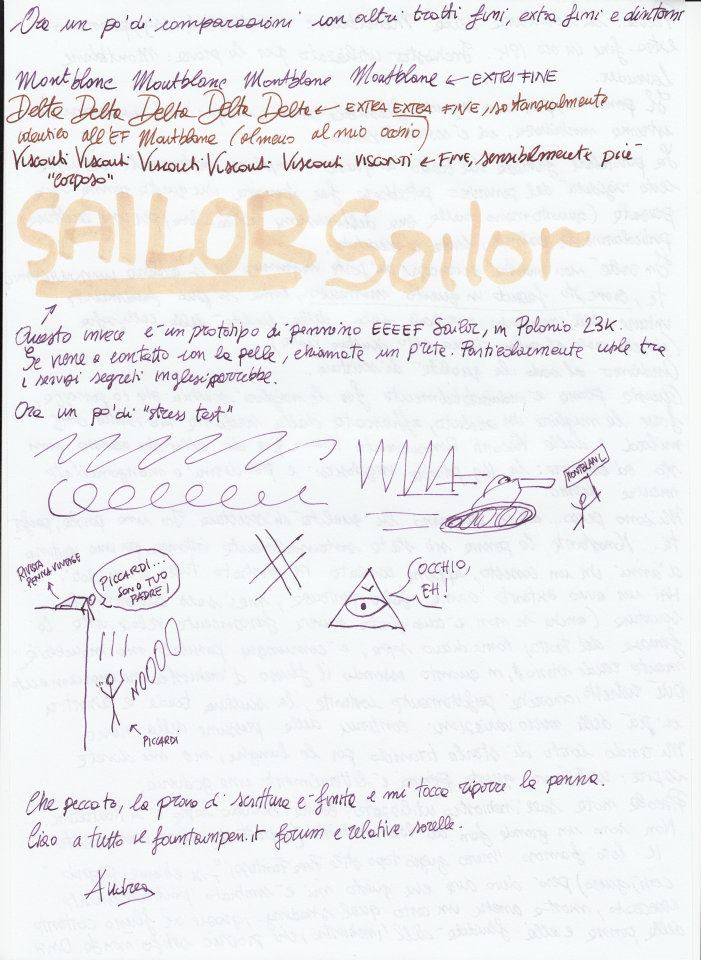 Ora un po' di comparazioni con altri tratti fini, extra fini e dintorni
Montblanc Montblanc Montblanc Montblanc ← EXTRA FINE
Delta Delta Delta Delta Delta ← EXTRA EXTRA FINE, sostanzialmente
identico all'EF Montblanc (almeno al mio occhio)
Visconti Visconti Visconti Visconti Visconti VISCONTI ← FINE, sensibilmente più
"corposo"
SAILOR Sailor
Questo invece è un prototipo di pennino EEEEF Sailor, in Polonio 23K.
Se viene a contatto con la pelle, chiamate un prete. Particolarmente utile tra
i servizi segreti inglesi parrebbe.
Ora un po' di "stress test"
MONTBLANC
RIVISTA
PENNA VIVENTE
PICCARDI...
SONO TUO
PADRE!
OCCHIO,
EH!
NOOOO
PICCARDI
Che peccato, la prova di scrittura è finita e mi tocca riporre la penna.
Ciao a tutto il fountainpen.it forum e relative sorelle.
Andrea